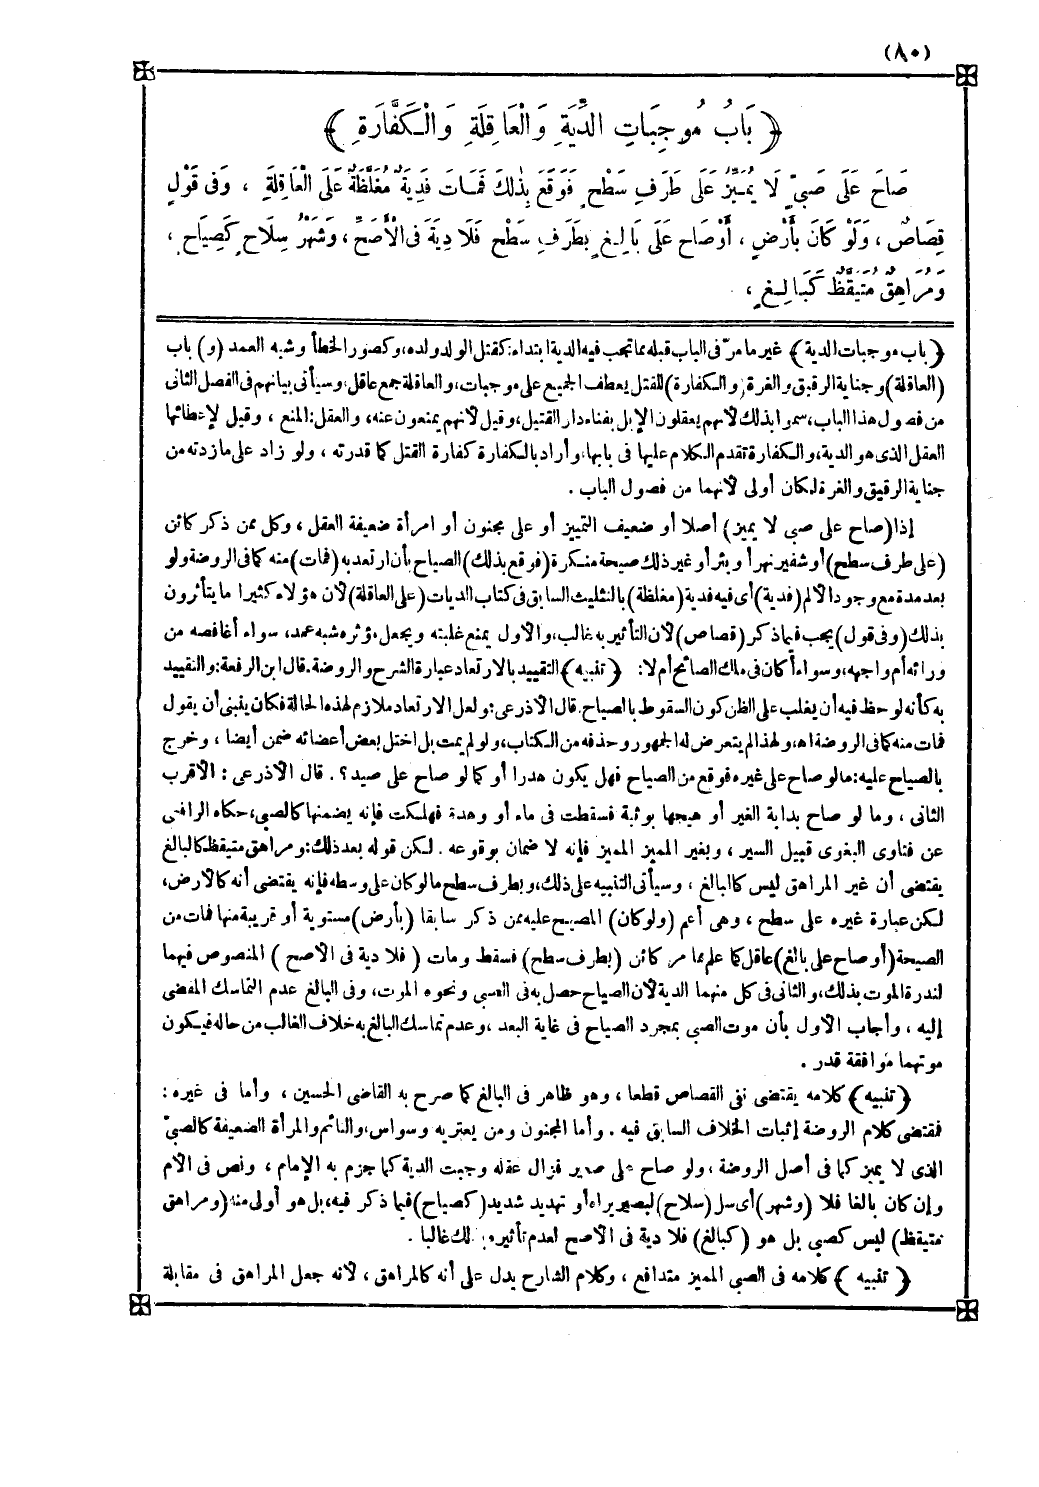 (٨٠)
﴿ بَابُ مُوجِبَاتِ الدِّيَةِ وَالْعَاقِلَةِ وَالْكَفَّارَةِ ﴾
صَاحَ عَلَى صَبِيٍّ لَا يُمَيِّزُ عَلَى طَرَفِ سَطْحٍ فَوَقَعَ بِذٰلِكَ فَمَاتَ فَدِيَةٌ مُغَلَّظَةٌ عَلَى الْعَاقِلَةِ ، وَفِى قَوْلٍ
قِصَاصٌ ، وَلَوْ كَانَ بِأَرْضٍ ، أَوْ صَاحَ عَلَى بَالِغٍ بِطَرَفِ سَطْحٍ فَلَا دِيَةَ فِى الْأَصَحِّ ، وَشَهْرُ سِلَاحٍ كَصِيَاحٍ ،
وَمُرَاهِقٌ مُتَيَقِّظٌ كَبَالِغٍ ،
﴿ باب موجبات الدية ﴾ غير ما مرّ فى الباب قبله مما تجب فيه الدية ابتداء: كقتل الوالد ولده، وكصور الخطأ وشبه العمد (و) باب
(العاقلة) وجناية الرقيق والغرة (والكفارة) للقتل بعطف الجميع على موجبات، والعاقلة جمع عاقل، وسيأتى بيانهم فى الفصل الثانى
من فصول هذا الباب، سموا بذلك لأنهم يعقلون الإبل بفناء دار القتيل، وقيل لأنهم يمنعون عنه، والعقل: المنع ، وقيل لإعطائها
العقل الذى هو الدية، والكفارة تقدم الكلام عليها فى بابها، وأراد بالكفارة كفارة القتل كما قدرته ، ولو زاد على ما زدته من
جناية الرقيق والغرة لكان أولى لأنهما من فصول الباب .
إذا (صاح على صبى لا يميز) أصلا أو ضعيف التمييز أو على مجنون أو امرأة ضعيفة العقل ، وكل ممن ذكر كائن
(على طرف سطح) أو شفير نهر أو بئر أو غير ذلك صيحة منكرة (فوقع بذلك) الصياح بأن ارتعد به (فمات) منه كما فى الروضة ولو
بعد مدة مع وجود الألم (فدية) أى فيه فدية (مغلظة) بالتثليث السابق فى كتاب الديات (على العاقلة) لأن هؤلاء كثيرا ما يتأثرون
بذلك (وفى قول) يجب فيما ذكر (قصاص) لأن التأثير به غالب، والأول يمنع غلبته ويجعل مؤثره شبه عمد، سواء أغافصه من
ورائه أم واجهه، وسواء أكان فى ملك الصائح أم لا: ﴿ تنبيه ﴾ التقييد بالارتعاد عبارة الشرح والروضة. قال ابن الرفعة: والتقييد
به كأنه لوحظ فيه أن يغلب على الظن كون السقوط بالصياح. قال الأذرعى: ولعل الارتعاد ملازم لهذه الحالة فكان ينبغى أن يقول
فمات منه كما فى الروضة اه، ولهذا لم يتعرض له الجمهور وحذفه من الكتاب، ولو لم يمت بل اختل بعض أعضائه ضمن أيضا ، وخرج
بالصياح عليه: ما لو صاح على غيره فوقع من الصياح فهل يكون هدرا أو كما لو صاح على صيد ؟ . قال الأذرعى : الأقرب
الثانى ، وما لو صاح بدابة الغير أو هيجها بوثبة فسقطت فى ماء أو وهدة فهلكت فإنه يضمنها كالصبى، حكاه الرافعى
عن فتاوى البغوى قبيل السير ، وبغير المميز المميز فإنه لا ضمان بوقوعه . لكن قوله بعد ذلك: ومراهق متيقظ كالبالغ
يقتضى أن غير المراهق ليس كالبالغ ، وسيأتى التنبيه على ذلك، وبطرف سطح ما لو كان على وسطه فإنه يقتضى أنه كالأرض،
لكن عبارة غيره على سطح ، وهى أعم (ولو كان) المصيح عليه ممن ذكر سابقا (بأرض) مستوية أو قريبة منها فمات من
الصيحة (أو صاح على بالغ) عاقل كما علم مما مر كائن (بطرف سطح) فسقط ومات ( فلا دية فى الأصح ) المنصوص فيهما
لندرة الموت بذلك، والثانى فى كل منهما الدية لأن الصياح حصل به فى الصبى ونحوه الموت، وفى البالغ عدم التماسك المفضى
إليه ، وأجاب الأول بأن موت الصبى بمجرد الصياح فى غاية البعد ، وعدم تماسك البالغ به خلاف الغالب من حاله فيكون
موتهما موافقة قدر .
﴿ تنبيه ﴾ كلامه يقتضى نفى القصاص قطعا ، وهو ظاهر فى البالغ كما صرح به القاضى الحسين ، وأما فى غيره :
فمقتضى كلام الروضة إثبات الخلاف السابق فيه . وأما المجنون ومن يعتريه وسواس، والنائم والمرأة الضعيفة كالصبىّ
الذى لا يميز كما فى أصل الروضة ، ولو صاح على صغير فزال عقله وجبت الدية كما جزم به الإمام ، ونص فى الأم
وإن كان بالغا فلا (وشهر) أى سل (سلاح) لبصير يراه أو تهديد شديد (كصياح) فيما ذكر فيه، بل هو أولى منه (ومراهق
متيقظ) ليس كصبى بل هو (كبالغ) فلا دية فى الأصح لعدم تأثيره بذلك غالبا .
﴿ تنبيه ﴾ كلامه فى الصبى المميز متدافع ، وكلام الشارح يدل على أنه كالمراهق ، لأنه جعل المراهق فى مقابلة